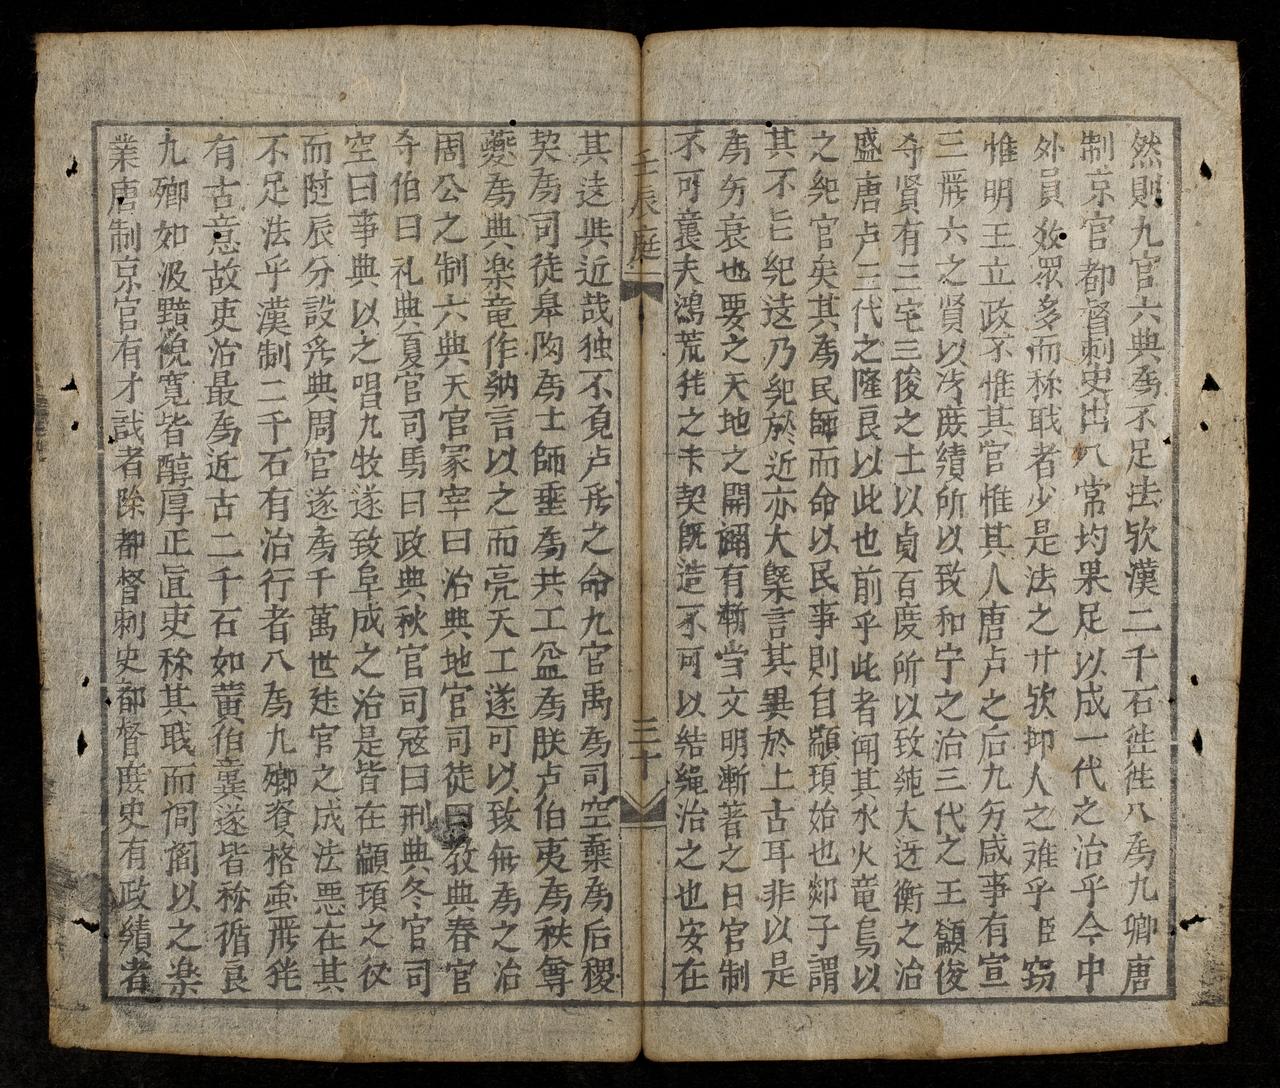 然則九官六典為不足法欤漢二千石徃徃入為九卿唐
制京官都督刺史出入常均果足以成一代之治乎今中
外員数衆多而称戢者少是法之廿欤抑人之难乎臣窃
惟明王立政不惟其官惟其人唐虞之后九官咸事有宣
三𠩄六之賢以浚庶績所以致和宁之治三代之王籲俊
夺賢有三宅三俊之士以貞百度所以致純大迓衡之治
盛唐虞三代之隆良以此也前乎此者闻其水火竜鳥以
之紀官矣其為民師而命以民事則自顓頊始也郯子謂
其不能紀逺乃紀於近亦大槩言其異於上古耳非以是
為劣衰也要之天地之開闢有漸当文明漸著之日官制
不可襄夫鴻荒之未契既造不可以結繩治之也安在
壬辰庭
三十
其逺與近哉独不覔虞𠩄之命九官禹為司空棄為后稷
契為司徒皋陶為士師垂為共工益為朕虞伯夷為秩尊
夔為典楽竜作納言以之而亮天工遂可以致無為之治
周公之制六典天官冢宰曰治典地官司徒曰教典春官
夺伯曰礼典夏官司馬曰政典秋官司冦曰刑典冬官司
空曰事典以之唱九牧遂致阜成之治是皆在顓頊之后
而附辰分設虞典周官遂為千萬世建官之成法悪在其
不足法乎漢制二千石有治行者入為九卿資格虽𠩄
有古意故吏治最為近古二千石如黄伯龔遂皆称循良
九卿如汲黯倪寛皆醇厚正直吏称其戢而闾阎以之楽
業唐制京官有才戢者除都督刺史都督庶史有政績者